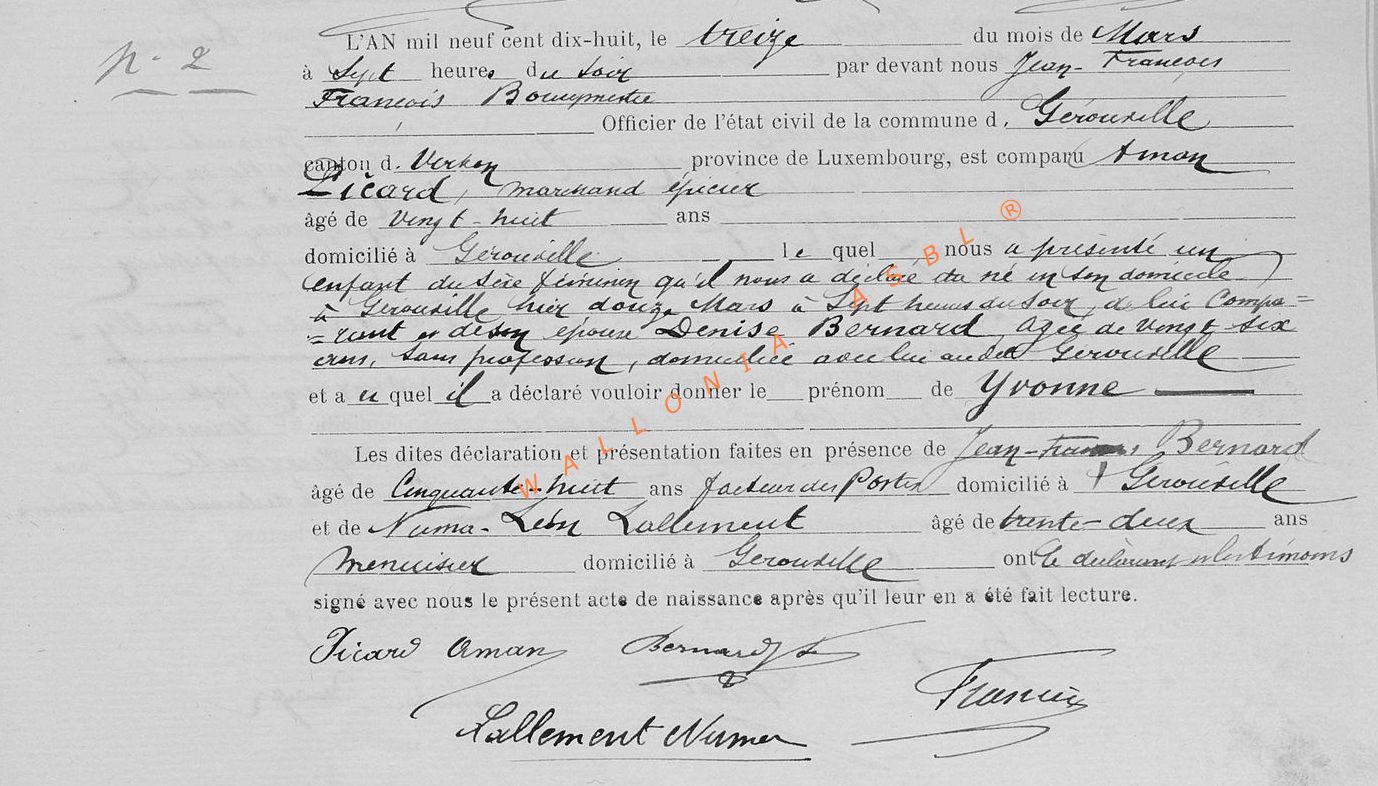 n. 2
L'AN mil neuf cent dix-huit, le treize du mois de Mars
à Sept heures du soir par devant nous Jean-François
François Bourgmestre
Officier de l'état civil de la commune d. Gérouville
canton d. Virton province de Luxembourg, est comparu Aman
Picard, marchand épicier
âgé de vingt-huit ans
domicilié à Gérouville le quel nous a présenté un
enfant du sexe féminin qu'il nous a déclaré être né en son domicile
à Gérouville hier douze Mars à Sept heures du soir, de lui Compa=
=rant et de son épouse Denise Bernard agée de vingt-six
ans, sans profession, domiciliée avec lui au dit Gérouville
et au quel il a déclaré vouloir donner le prénom de Yvonne
Les dites déclaration et présentation faites en présence de Jean- Bernard
âgé de Cinquante-huit ans facteur des Postes domicilié à Gérouville
et de Numa-Léon Lallement âgé de trente-deux ans
menuisier domicilié à Gérouville ont le déclarant et les témoins
signé avec nous le présent acte de naissance après qu'il leur en a été fait lecture.
Picard Aman Bernard
François
Lallement Numa
WALLONIA ASBL ®